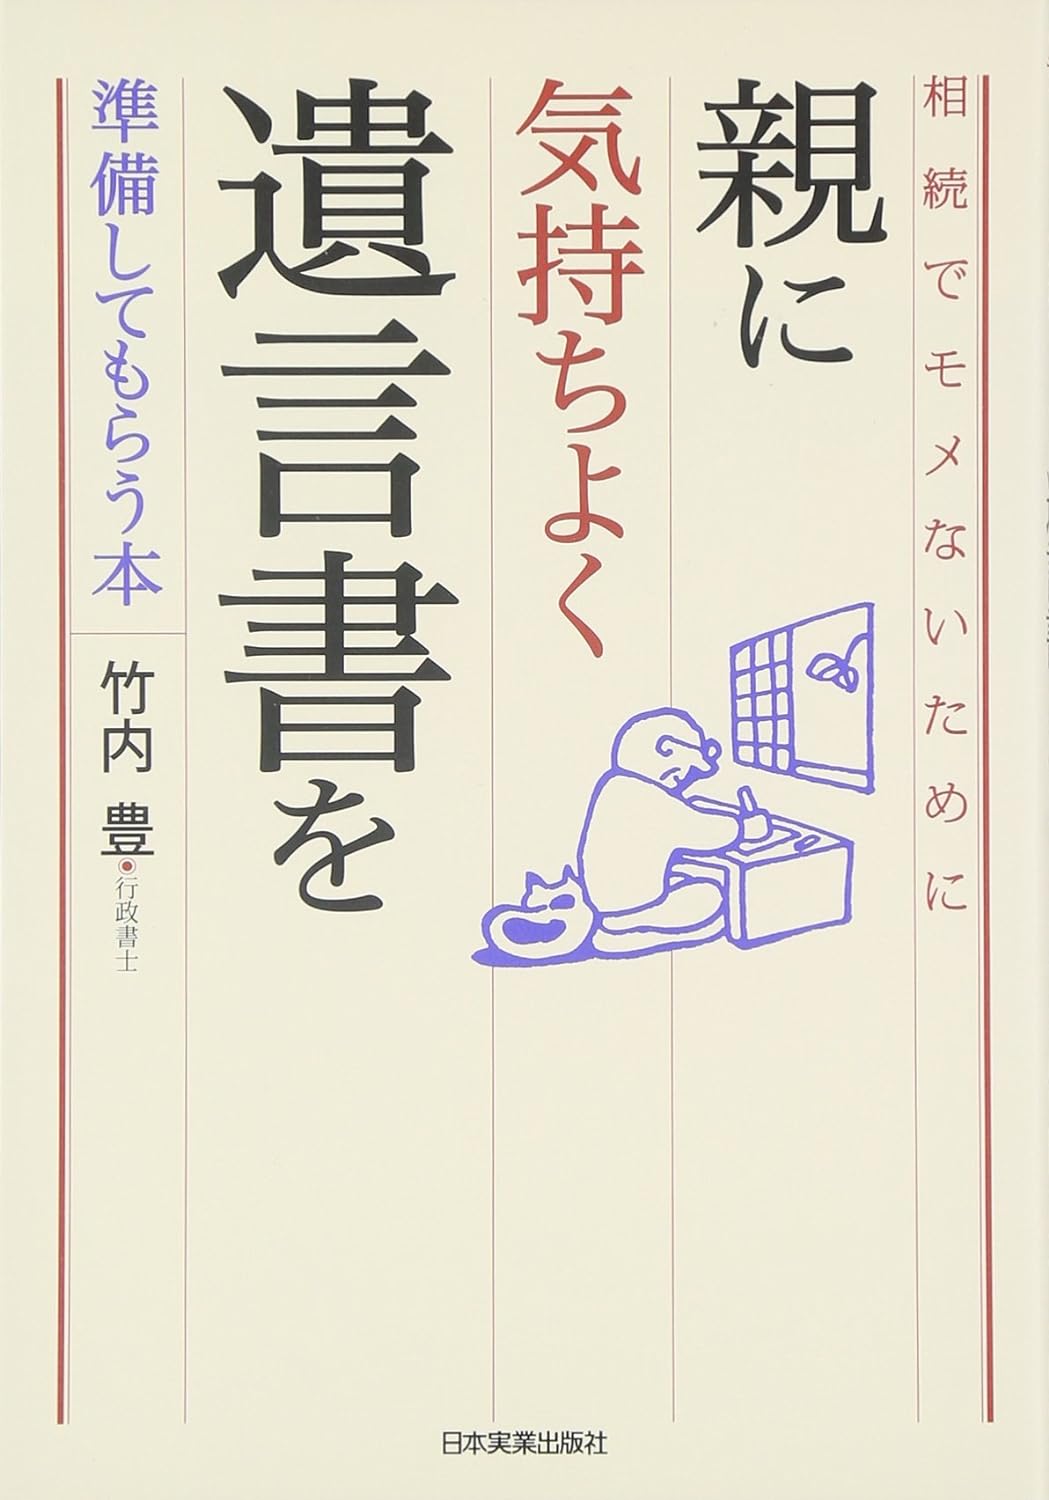 相続でモメないために
親に
気持ちよく
遺言書を
準備してもらう本
竹内 豊●行政書士
日本実業出版社